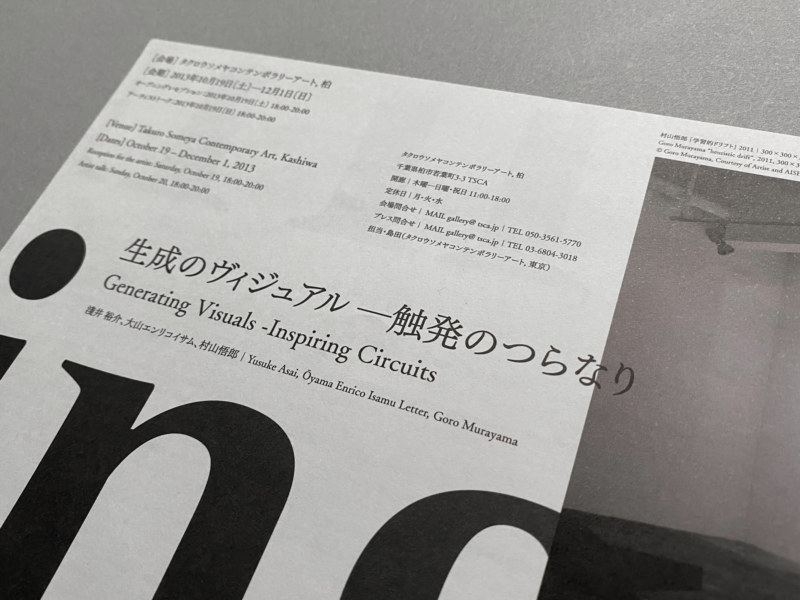 [会場] タクロウソメヤコンテンポラリーアート, 柏
[会期] 2013年10月19日[土]—12月1日[日]
オープニングレセプション：2013年10月19日[土] 18:00-20:00
アーティストトーク：2013年10月20日[日] 18:00-20:00
[Venue] Takuro Someya Contemporary Art, Kashiwa
[Dates] October 19 – December 1, 2013
Reception for the artists: Saturday, October 19, 18:00-20:00
Artist talk: Sunday, October 20, 18:00-20:00
タクロウソメヤコンテンポラリーアート, 柏
千葉県柏市若葉町3-3 TSCA
開廊 | 木曜—日曜・祝日 11:00-18:00
定休日 | 月・火・水
会場問合せ | MAIL gallery@tsca.jp | TEL 050-3561-5770
プレス問合せ | MAIL gallery@tsca.jp | TEL 03-6804-3018
担当・島田(タクロウソメヤコンテンポラリーアート, 東京)
村山悟郎 「学習的ドリフト」 2011 | 300 × 360 ×
Goro Murayama "heuristic drift", 2011, 300 ×
© Goro Murayama, Courtesy of Artist and AISH
生成のヴィジュアル —触発のつらなり
Generating Visuals -Inspiring Circuits
淺井 裕介、大山エンリコイサム、村山悟郎 | Yusuke Asai, Ōyama Enrico Isamu Letter, Goro Murayama
in